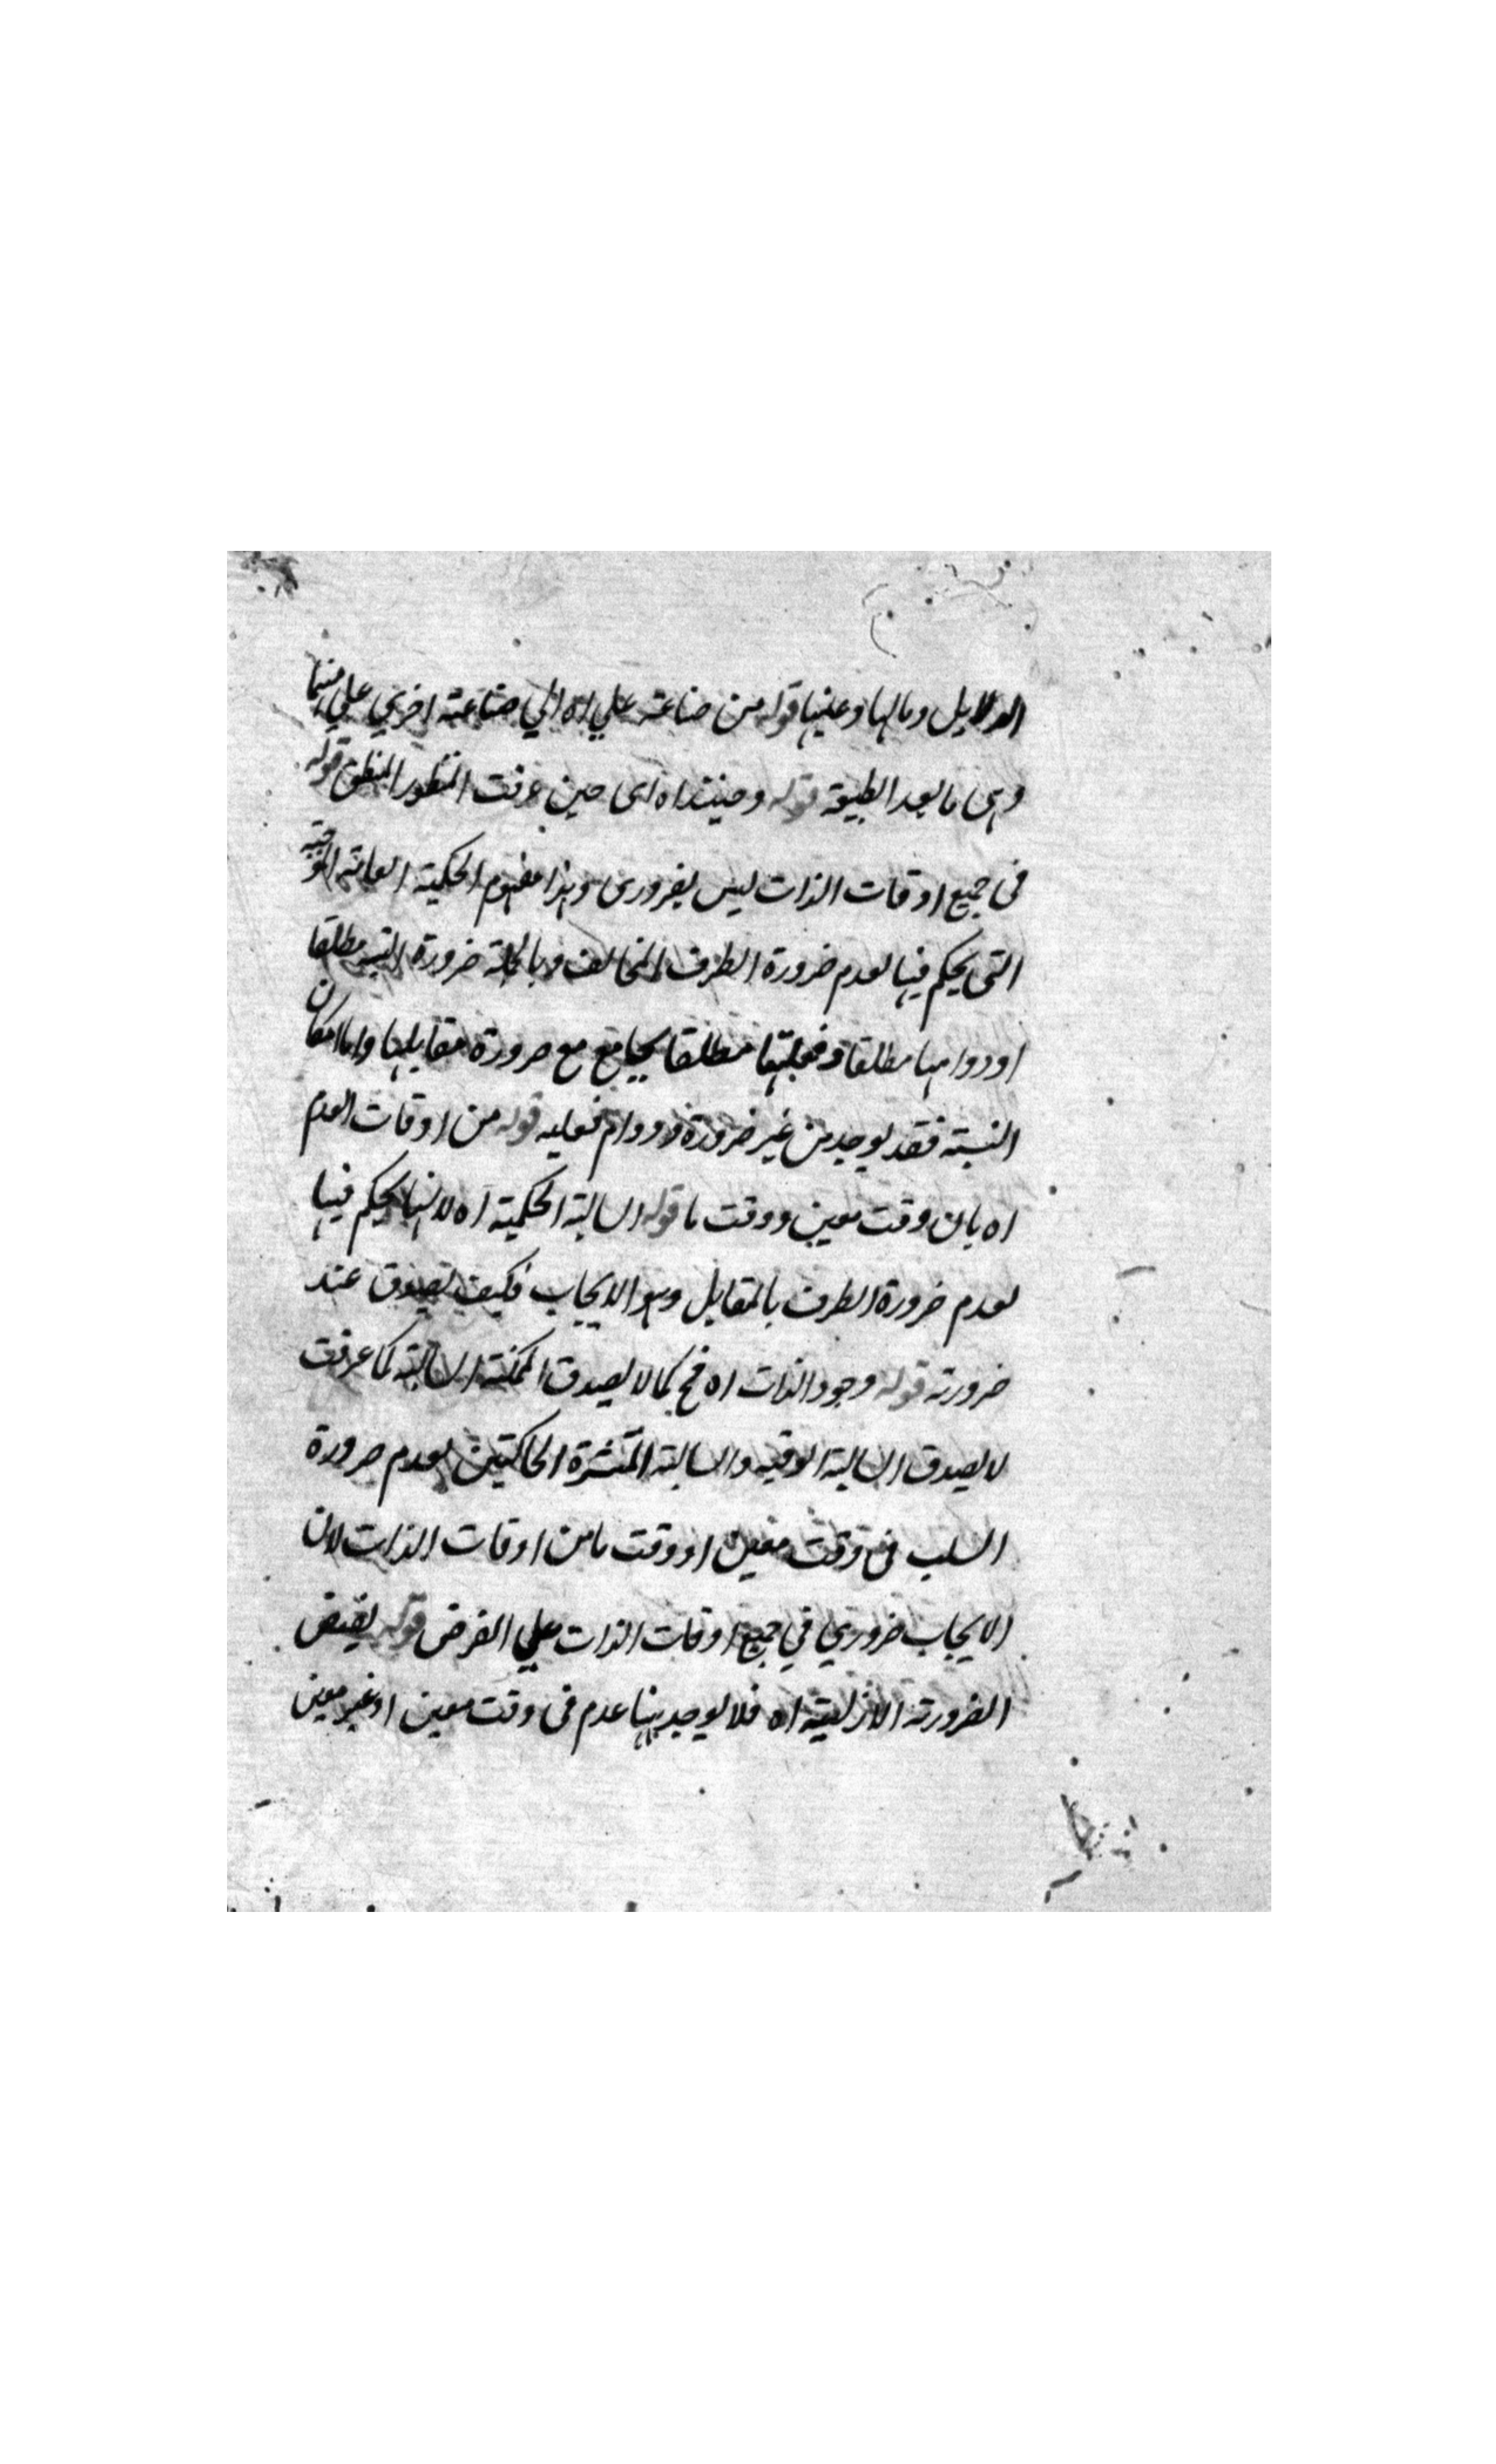 الدلايل ومالها وعليها قوله من صناعة علي اه الي صناعة اخري علي منها
وهى ما بعد الطبيعة قوله وحينئذ اه اى حين عرفت المنظور المنطق قوله
فى جميع اوقات الذات ليس بضرورى وهذا مفهوم الحكمية العامة الموجبة
التى يحكم فيها بعدم ضرورة الطرف المخالف وبالجملة ضرورة النسبة مطلقا
او دوامها مطلقا وفعليتها مطلقا يجامع مع ضرورة مقابلها واما امكان
النسبة فقد يوجد من غير ضرورة ودوام فعليه قوله من اوقات العدم
اه بان وقت معين ووقت ما قوله السالبة الحكمية اه لانها يحكم فيها
بعدم ضرورة الطرف بالمقابل وهو الايجاب فكيف يصدق عند
ضرورته قوله وجود الذات اه فح كما لا يصدق الممكنة السالبة كما عرفت
لا يصدق السالبة الوقتيه والسالبة المنتشرة الحاكمتين بعدم ضرورة
السلب فى وقت معين او وقت ما من اوقات الذات لان
الايجاب ضروري في جميع اوقات الذات علي الفرض قوله نقيض
الضرورة الازلية اه فلا يوجد هنا عدم فى وقت معين او غير معين